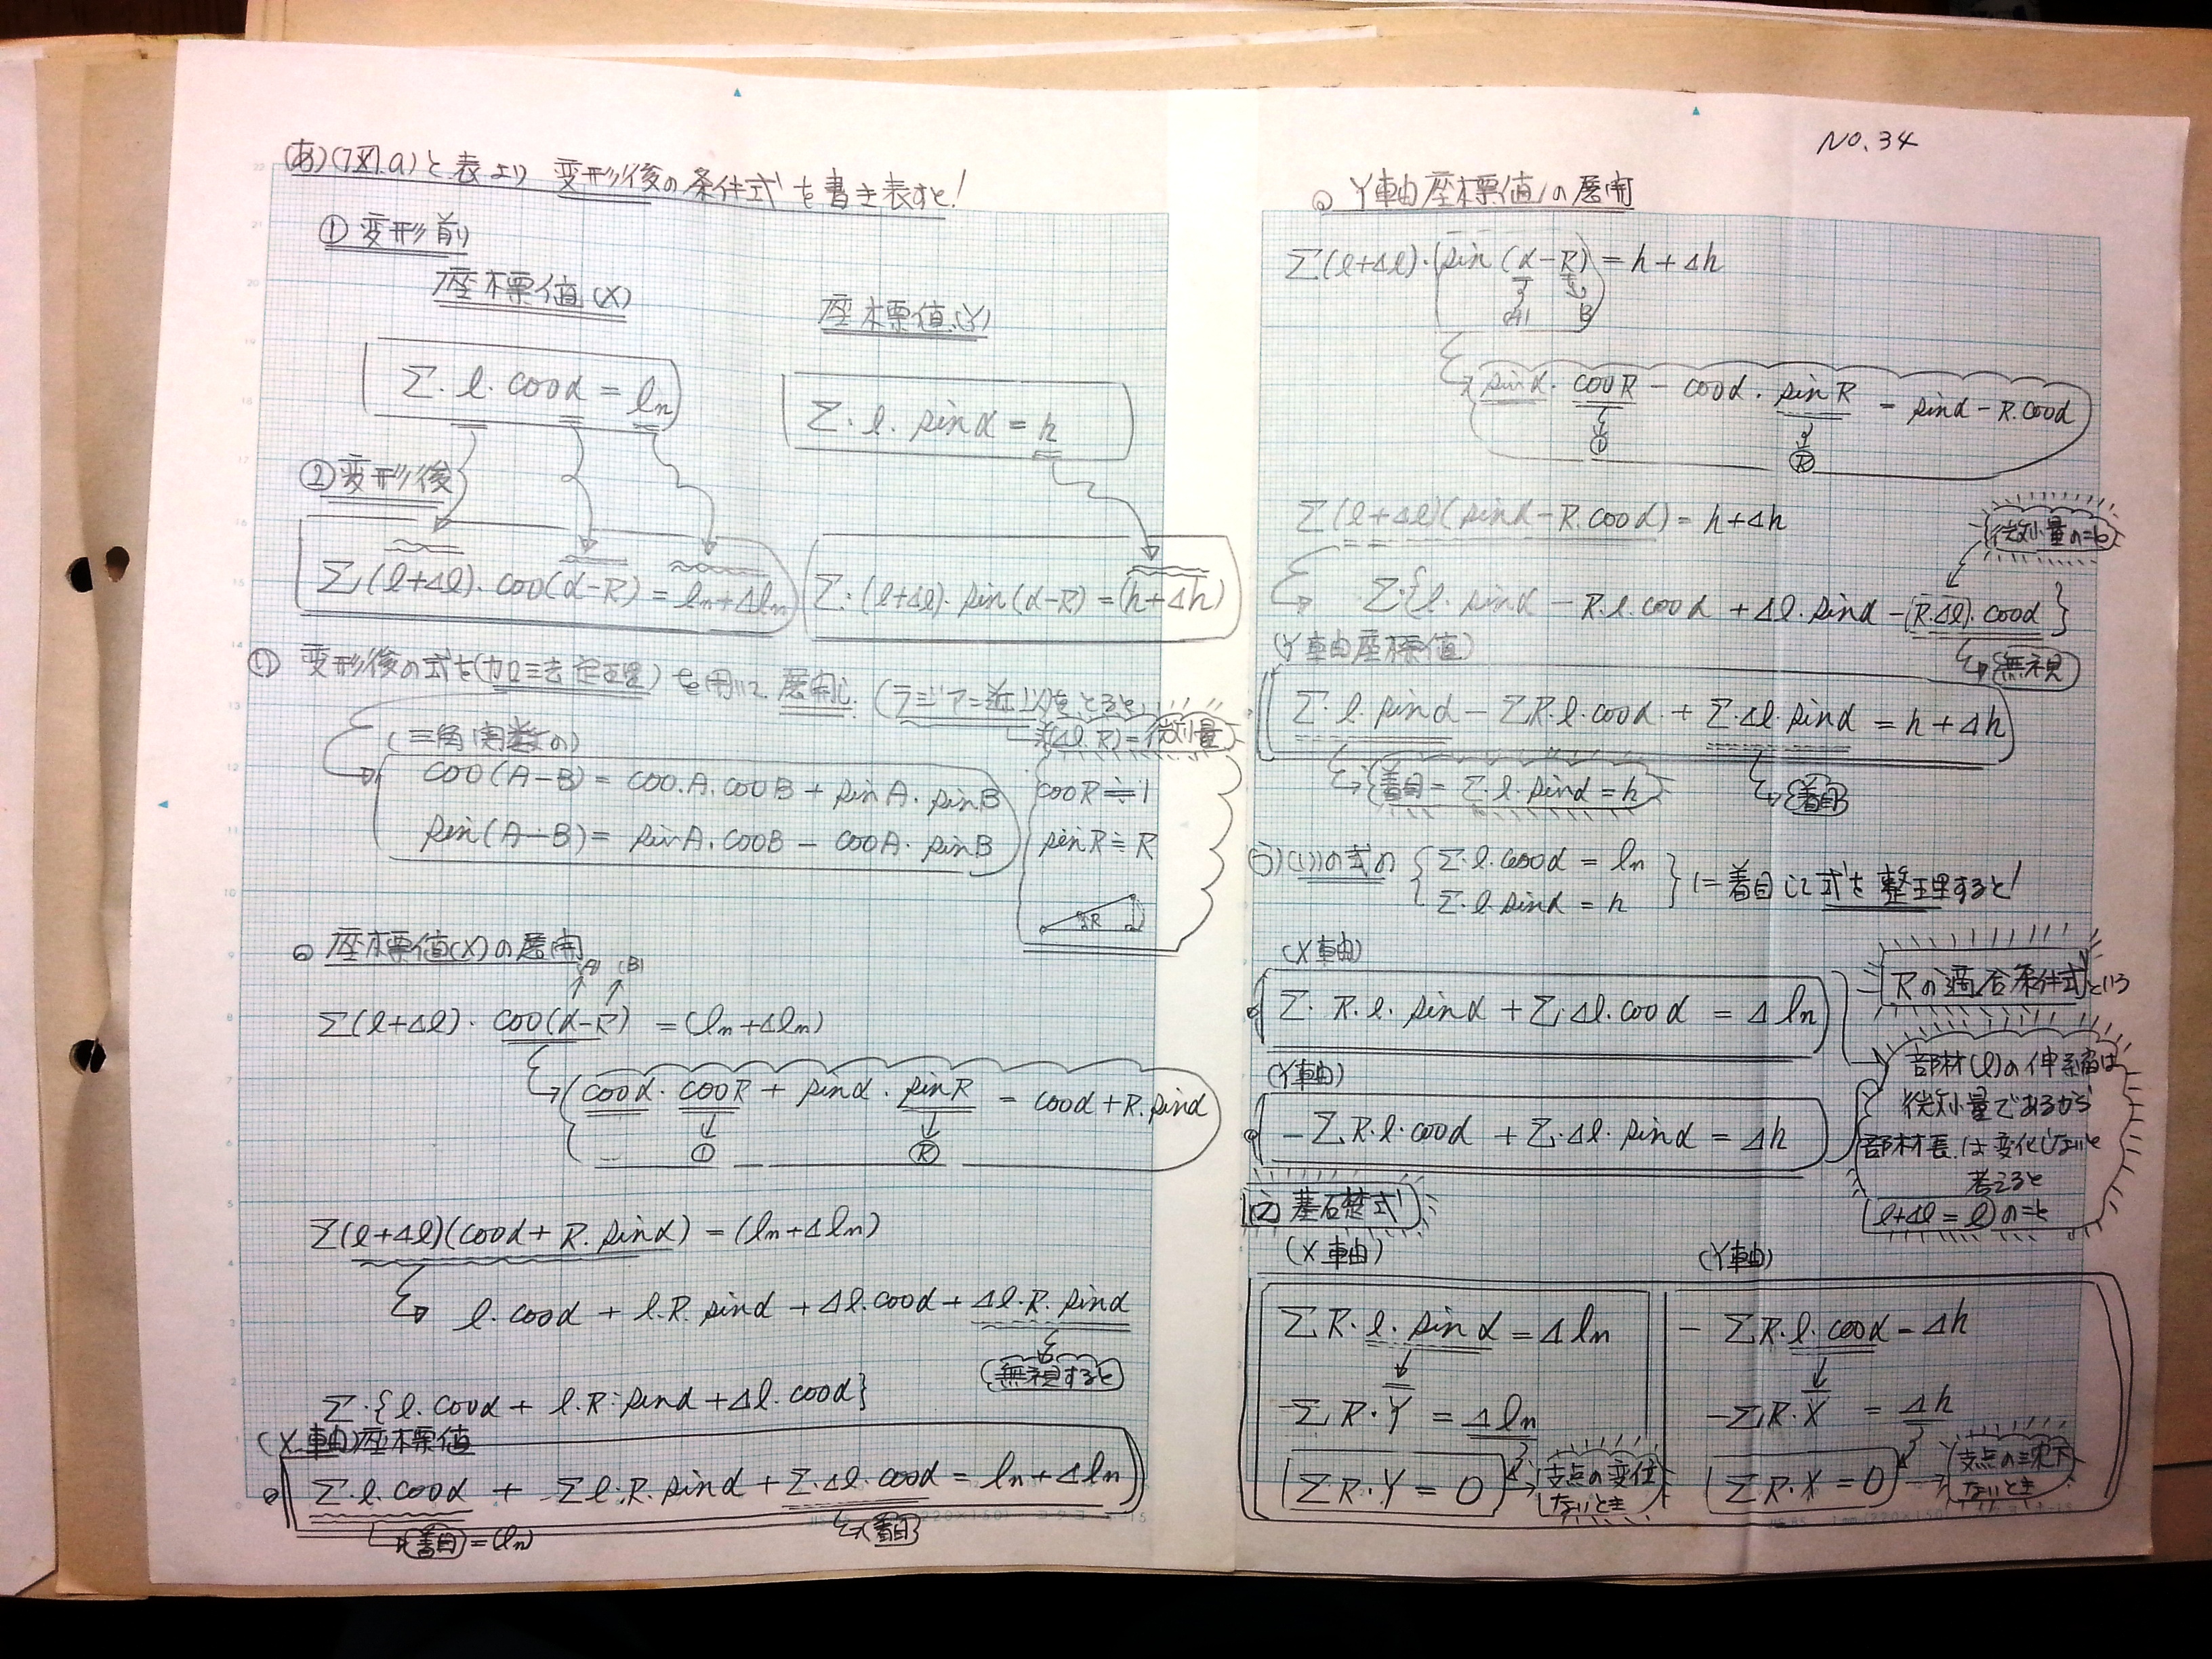 NO.34
(あ)(7図.a)と表より 変形後の条件式を書き表すと!
① 変形前
座標値(X)
座標値(Y)
Σ・l・cosα = ln
Σ・l・sinα = h
② 変形後
Σ(l+Δl)・cos(α-R) = ln+Δln
Σ・(l+Δl)・sin(α-R) = (h+Δh)
(い) 変形後の式を(加法定理)を用いて展開し.(ラジアン近似をとると)
(Δl.R)=微小量
(三角関数の)
cos(A-B) = cos.A.cosB + sinA.sinB
sin(A-B) = sinA.cosB - cosA.sinB
cosR≒1
sinR≒R
R
座標値(X)の展開
(A) (B)
Σ(l+Δl)・cos(α-R) = (ln+Δln)
cosα・cosR + sinα・sinR = cosα+R.sinα
① Ⓡ
Σ(l+Δl)(cosα+R.sinα) = (ln+Δln)
l.cosα + l.R.sinα + Δl.cosα + Δl.R.sinα
無視すると
Σ・{l.cosα + l.R.sinα + Δl.cosα}
(X軸)座標値
Σ・l.cosα + Σl.R.sinα + Σ.Δl.cosα = ln+Δln
着目=(ln)
着目
Y軸座標値の展開
Σ(l+Δl)・sin(α-R) = h+Δh
(A) B
sinα・cosR - cosα・sinR = sinα-R.cosα
① Ⓡ
Σ(l+Δl)(sinα-R.cosα) = h+Δh
微小量のこと
Σ{l.sinα - R.l.cosα + Δl.sinα - (R.Δl).cosα}
無視
(Y軸座標値)
Σ.l.sinα - ΣR.l.cosα + Σ.Δl.sinα = h+Δh
着目=Σ.l.sinα=h
着目
(う)(い)の式の
Σ.l.cosα = ln
Σ.l.sinα = h
に着目して式を整理すると!
(X軸)
Σ.R.l.sinα + Σ.Δl.cosα = Δln
Rの適合条件式という
(Y軸)
-ΣR.l.cosα + Σ.Δl.sinα = Δh
部材(l)の伸縮は
微小量であるから
部材長.は変化しないと
考えると
(l+Δl=l)のこと
基礎式
(X軸)
(Y軸)
ΣR.l.sinα = Δln
- ΣR.l.cosα = Δh
ΣR.Y = Δln
-ΣR.X = Δh
ΣR.Y = 0
支点の変位
ないとき
ΣR.X = 0
支点の沈下
ないとき